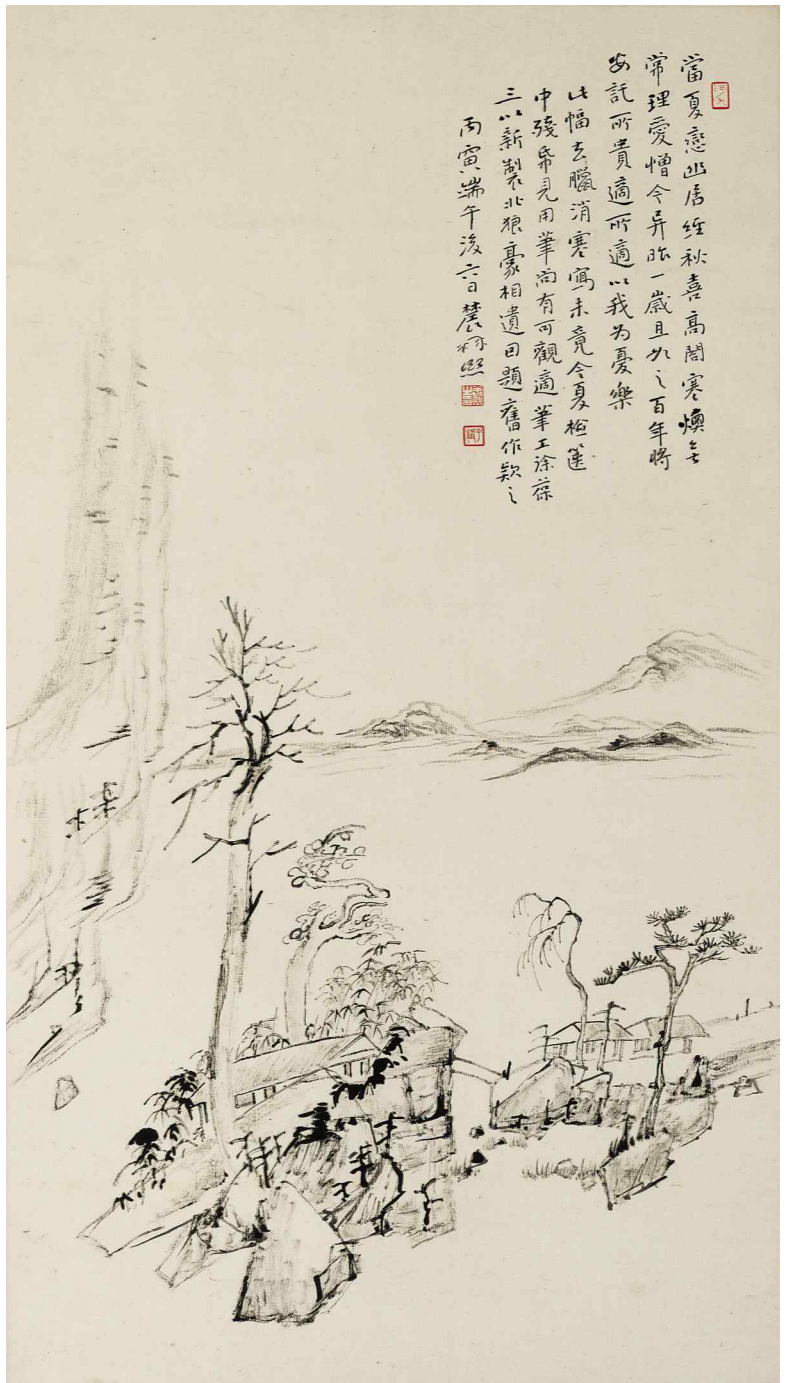 當夏戀幽居經秋喜高閣寒燠無
常理愛憎今异昨一歲且如之百年將
安託所貴適所適以我為憂樂
此幅去臘消寒寫未竟今夏檢篋
中殘帋見用筆尚有可觀適筆工涂葆
三以新製北狼豪相遺因題舊作款之
丙寅端午後六日農髯熙